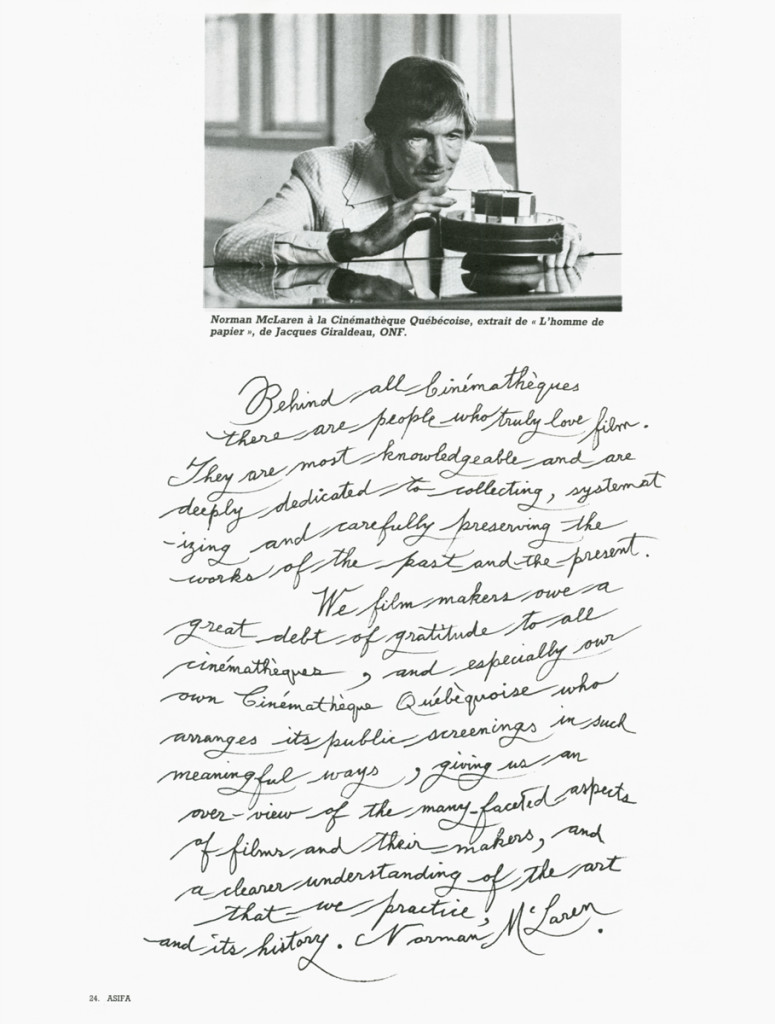 Norman McLaren à la Cinémathèque Québécoise, extrait de « L'homme de
papier », de Jacques Giraldeau, ONF.
Behind all Cinémathèques
there are people who truly love film.
They are most knowledgeable and are
deeply dedicated to collecting, systemat
-izing and carefully preserving the
works of the past and the present.
We film makers owe a
great debt of gratitude to all
cinémathèques, and especially our
own Cinémathèque Québèquoise who
arranges its public screenings in such
meaningful ways, giving us an
over-view of the many-faceted aspects
of films and their makers, and
a clearer understanding of the art
that we practice,
and its history. Norman McLaren.
24. ASIFA